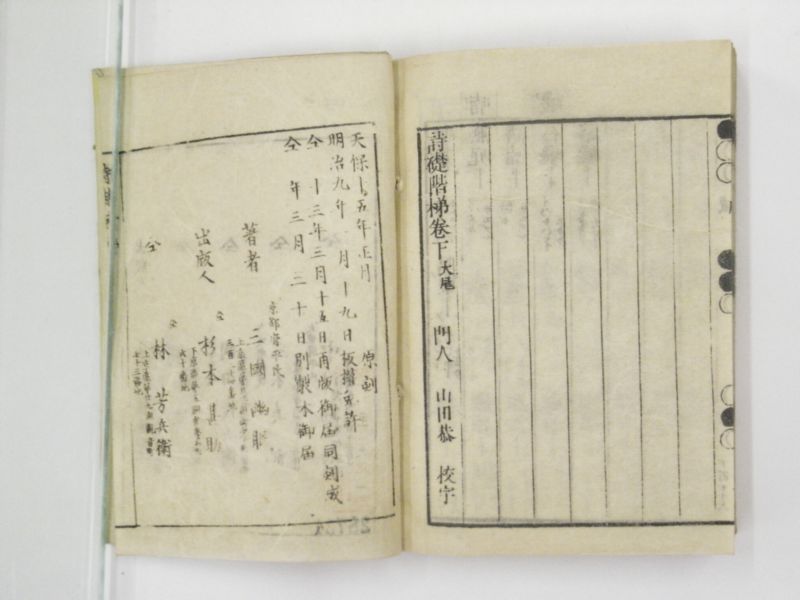 詩礎階梯巻下大尾 門人 山田恭 校字
天保十五年正月 原刻
明治九年 一月十九日板権免許
仝 十三年三月十五日再版御届同刻成
仝 年三月三十日別製本御届
京都府平民
著者 三國幽眠
出版人 仝 杉本甚助
仝 仝 林芳兵衛